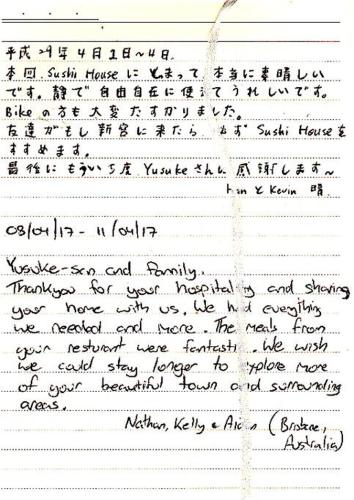 平成29年4月1日～4日.
本回 Sushi House に とまって 本当に素晴しい
です。静で 自由自在に使えて うれしいです。
Bike の方も大変たすかりました。
友達がもし新宮に来たら 必ず Sushi House を
すすめます。
最後にもういち度 Yusuke さんに 感謝します～
と Kevin 晴.
08/04/17 - 11/04/17
Yusuke-san and family.
Thankyou for your hospitality and sharing
your home with us. We had everything
we needed and more. The meals from
your resturant were fantastic. We wish
we could stay longer to explore more
of your beautiful town and surrounding
areas.
Nathan, Kelly & Aidan (Brisbane,
Australia)